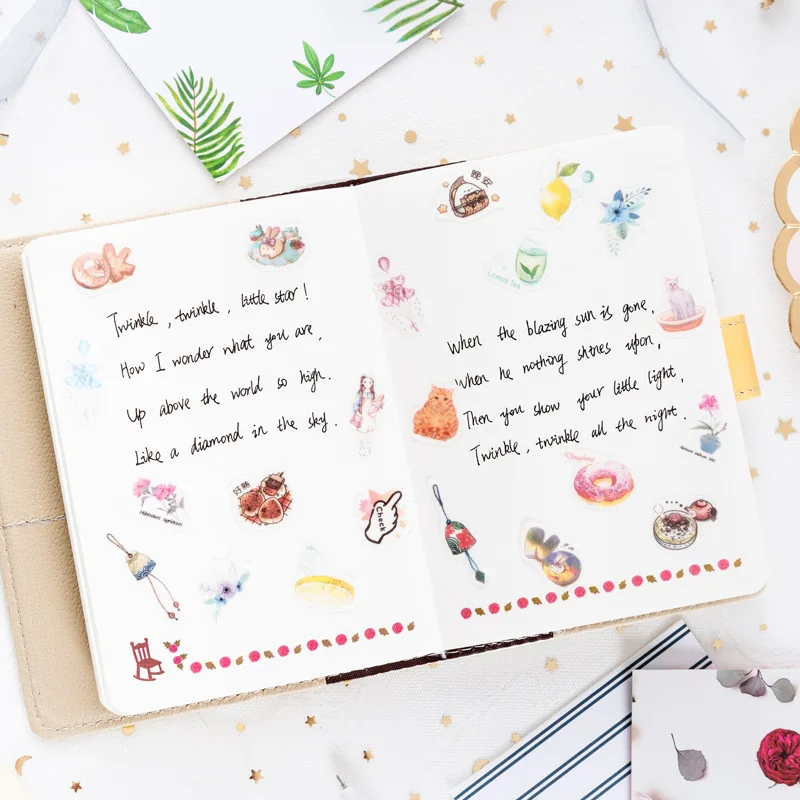 OK
Twinkle, twinkle, little star!
How I wonder what you are,
Up above the world so high.
Like a diamond in the sky.
好熱
Check
晚安
Lemon tea
When the blazing sun is gone,
When he nothing shines upon,
Then you show your little light,
Twinkle, twinkle all the night.